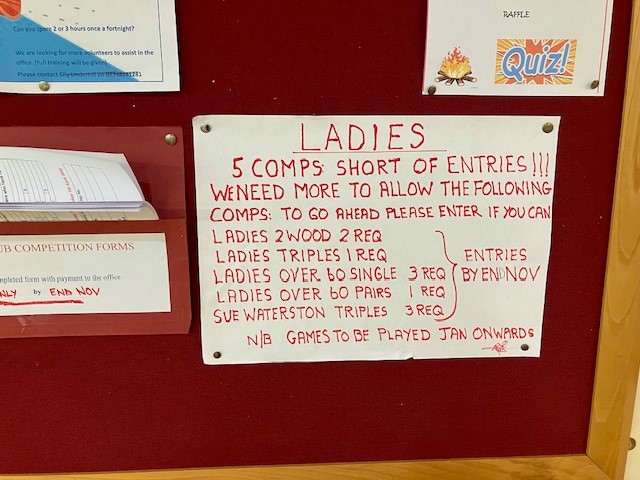 Can you spare 2 or 3 hours once a fortnight?
We are looking for more volunteers to assist in the
office. (Full training will be given)
Please contact
RAFFLE
Quiz!
LADIES
5 COMPS: SHORT OF ENTRIES!!!
WE NEED MORE TO ALLOW THE FOLLOWING
COMPS: TO GO AHEAD PLEASE ENTER IF YOU CAN
LADIES 2 WOOD 2 REQ
LADIES TRIPLES 1 REQ
LADIES OVER 60 SINGLE 3 REQ
LADIES OVER 60 PAIRS 1 REQ
SUE WATERSTON TRIPLES 3 REQ
ENTRIES
BY END NOV
N/B GAMES TO BE PLAYED JAN ONWARDS
UB COMPETITION FORMS
mpleted form with payment to the office
NLY by END NOV